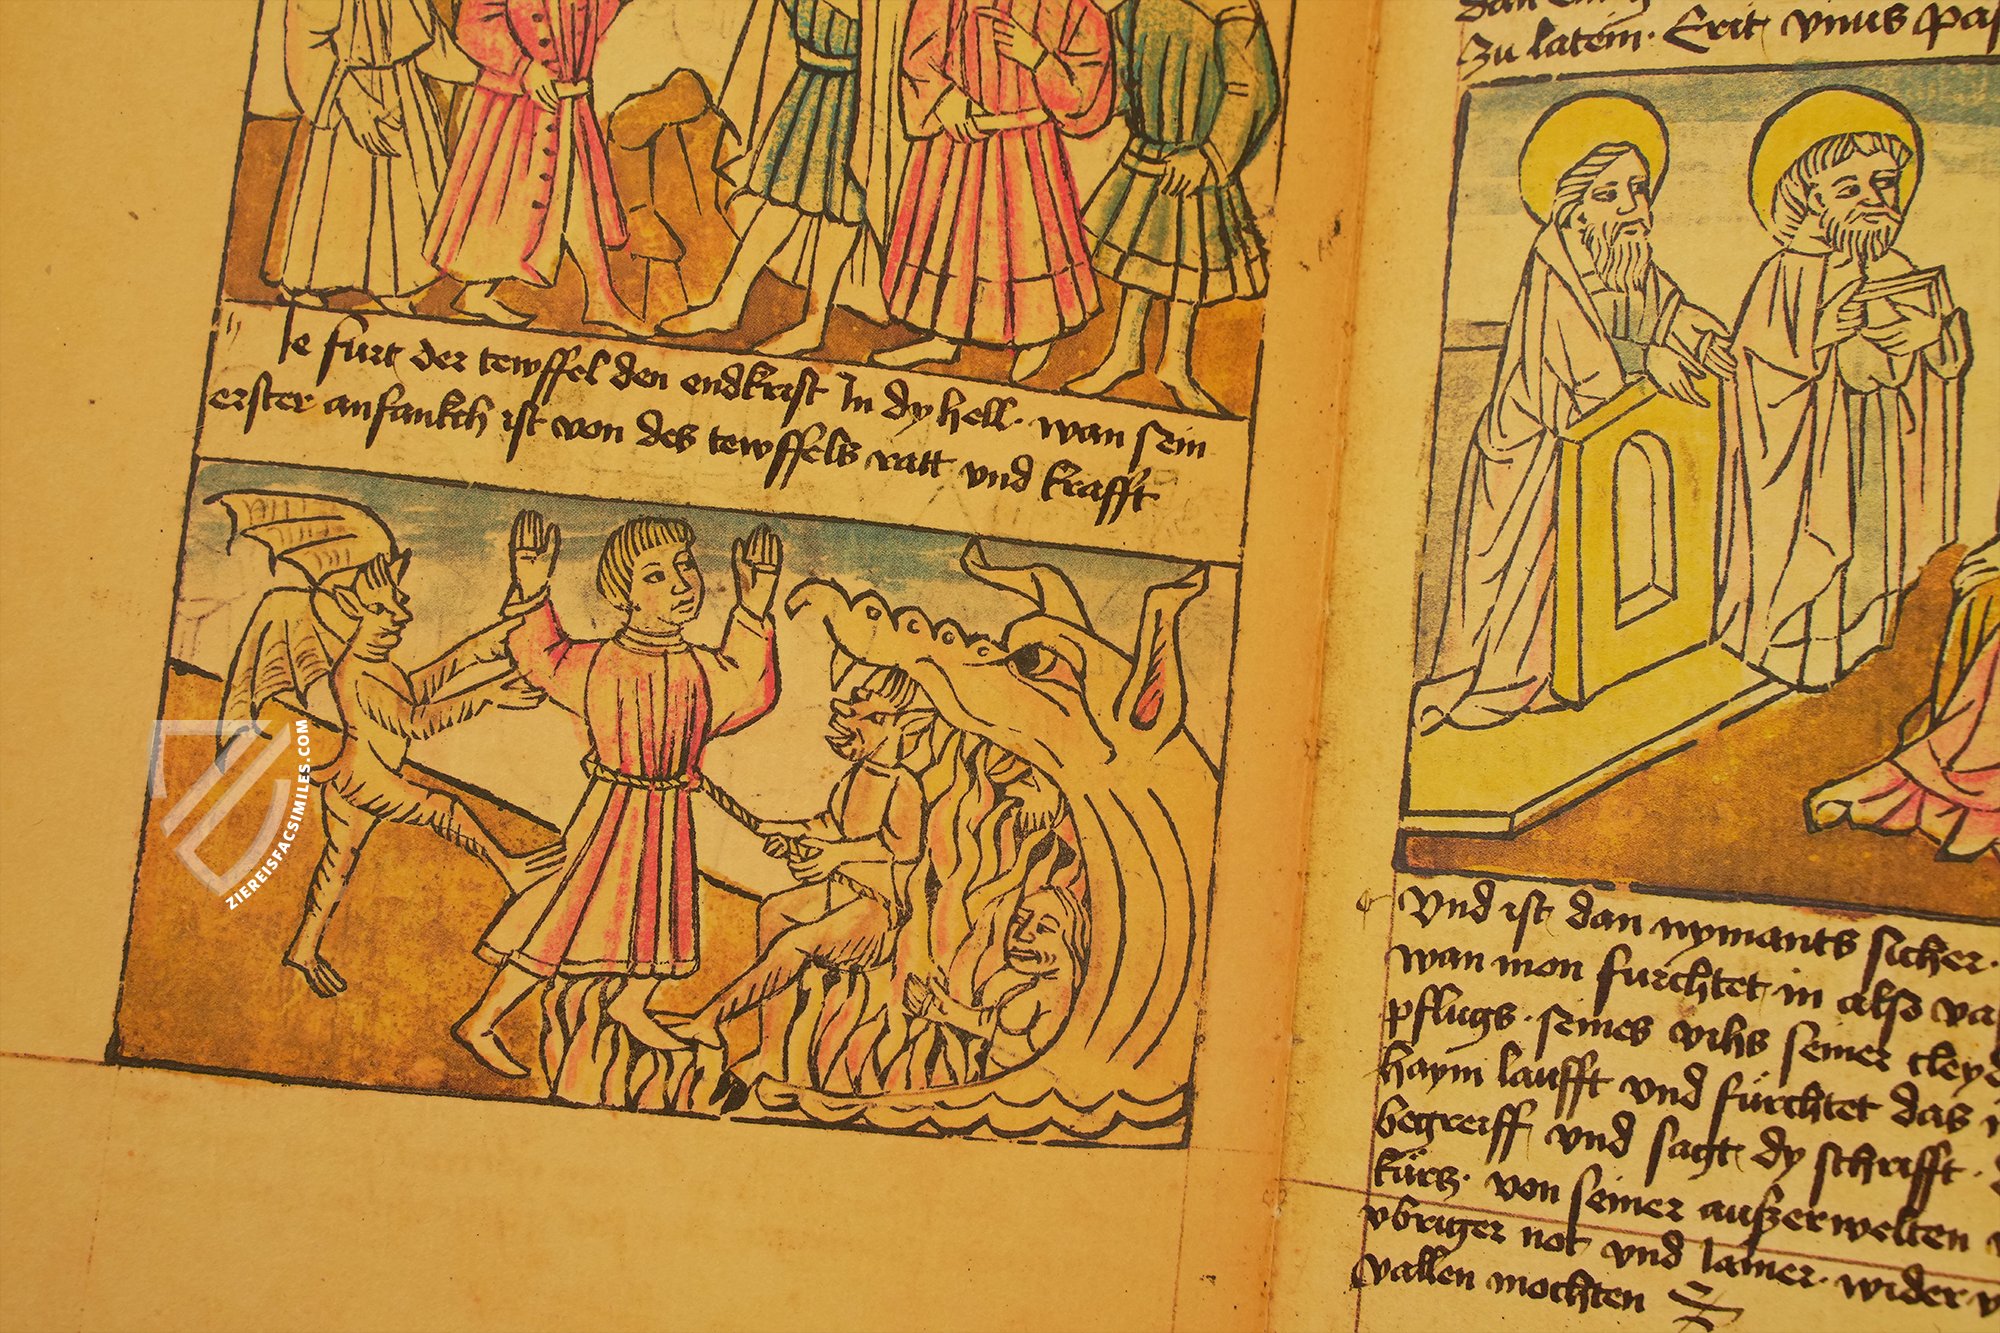 ie furt der tewffel den endkrist In dy hell. wan sein
erster anfankch ist von des tewffels ratt vnd krafft
zu latein. Erit vnus pas
Vnd ist dan nymants sicher.
wan mon furchtet in also va
pflugs. seines vihs seiner cley
haym laufft vnd fürchtet das
begreiff vnd sagt dy schrifft.
kürtz. von seiner außerwelten
vbriger not vnd iamer. wider v
vallen mochten
ZIEREISFACSIMILES.COM